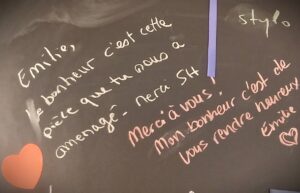 stylo
Emilie,
le bonheur c'est cette
pièce que tu nous a
amenagé - merci 5H
Merci à vous !
Mon bonheur c'est de
vous rendre heureux
Emilie